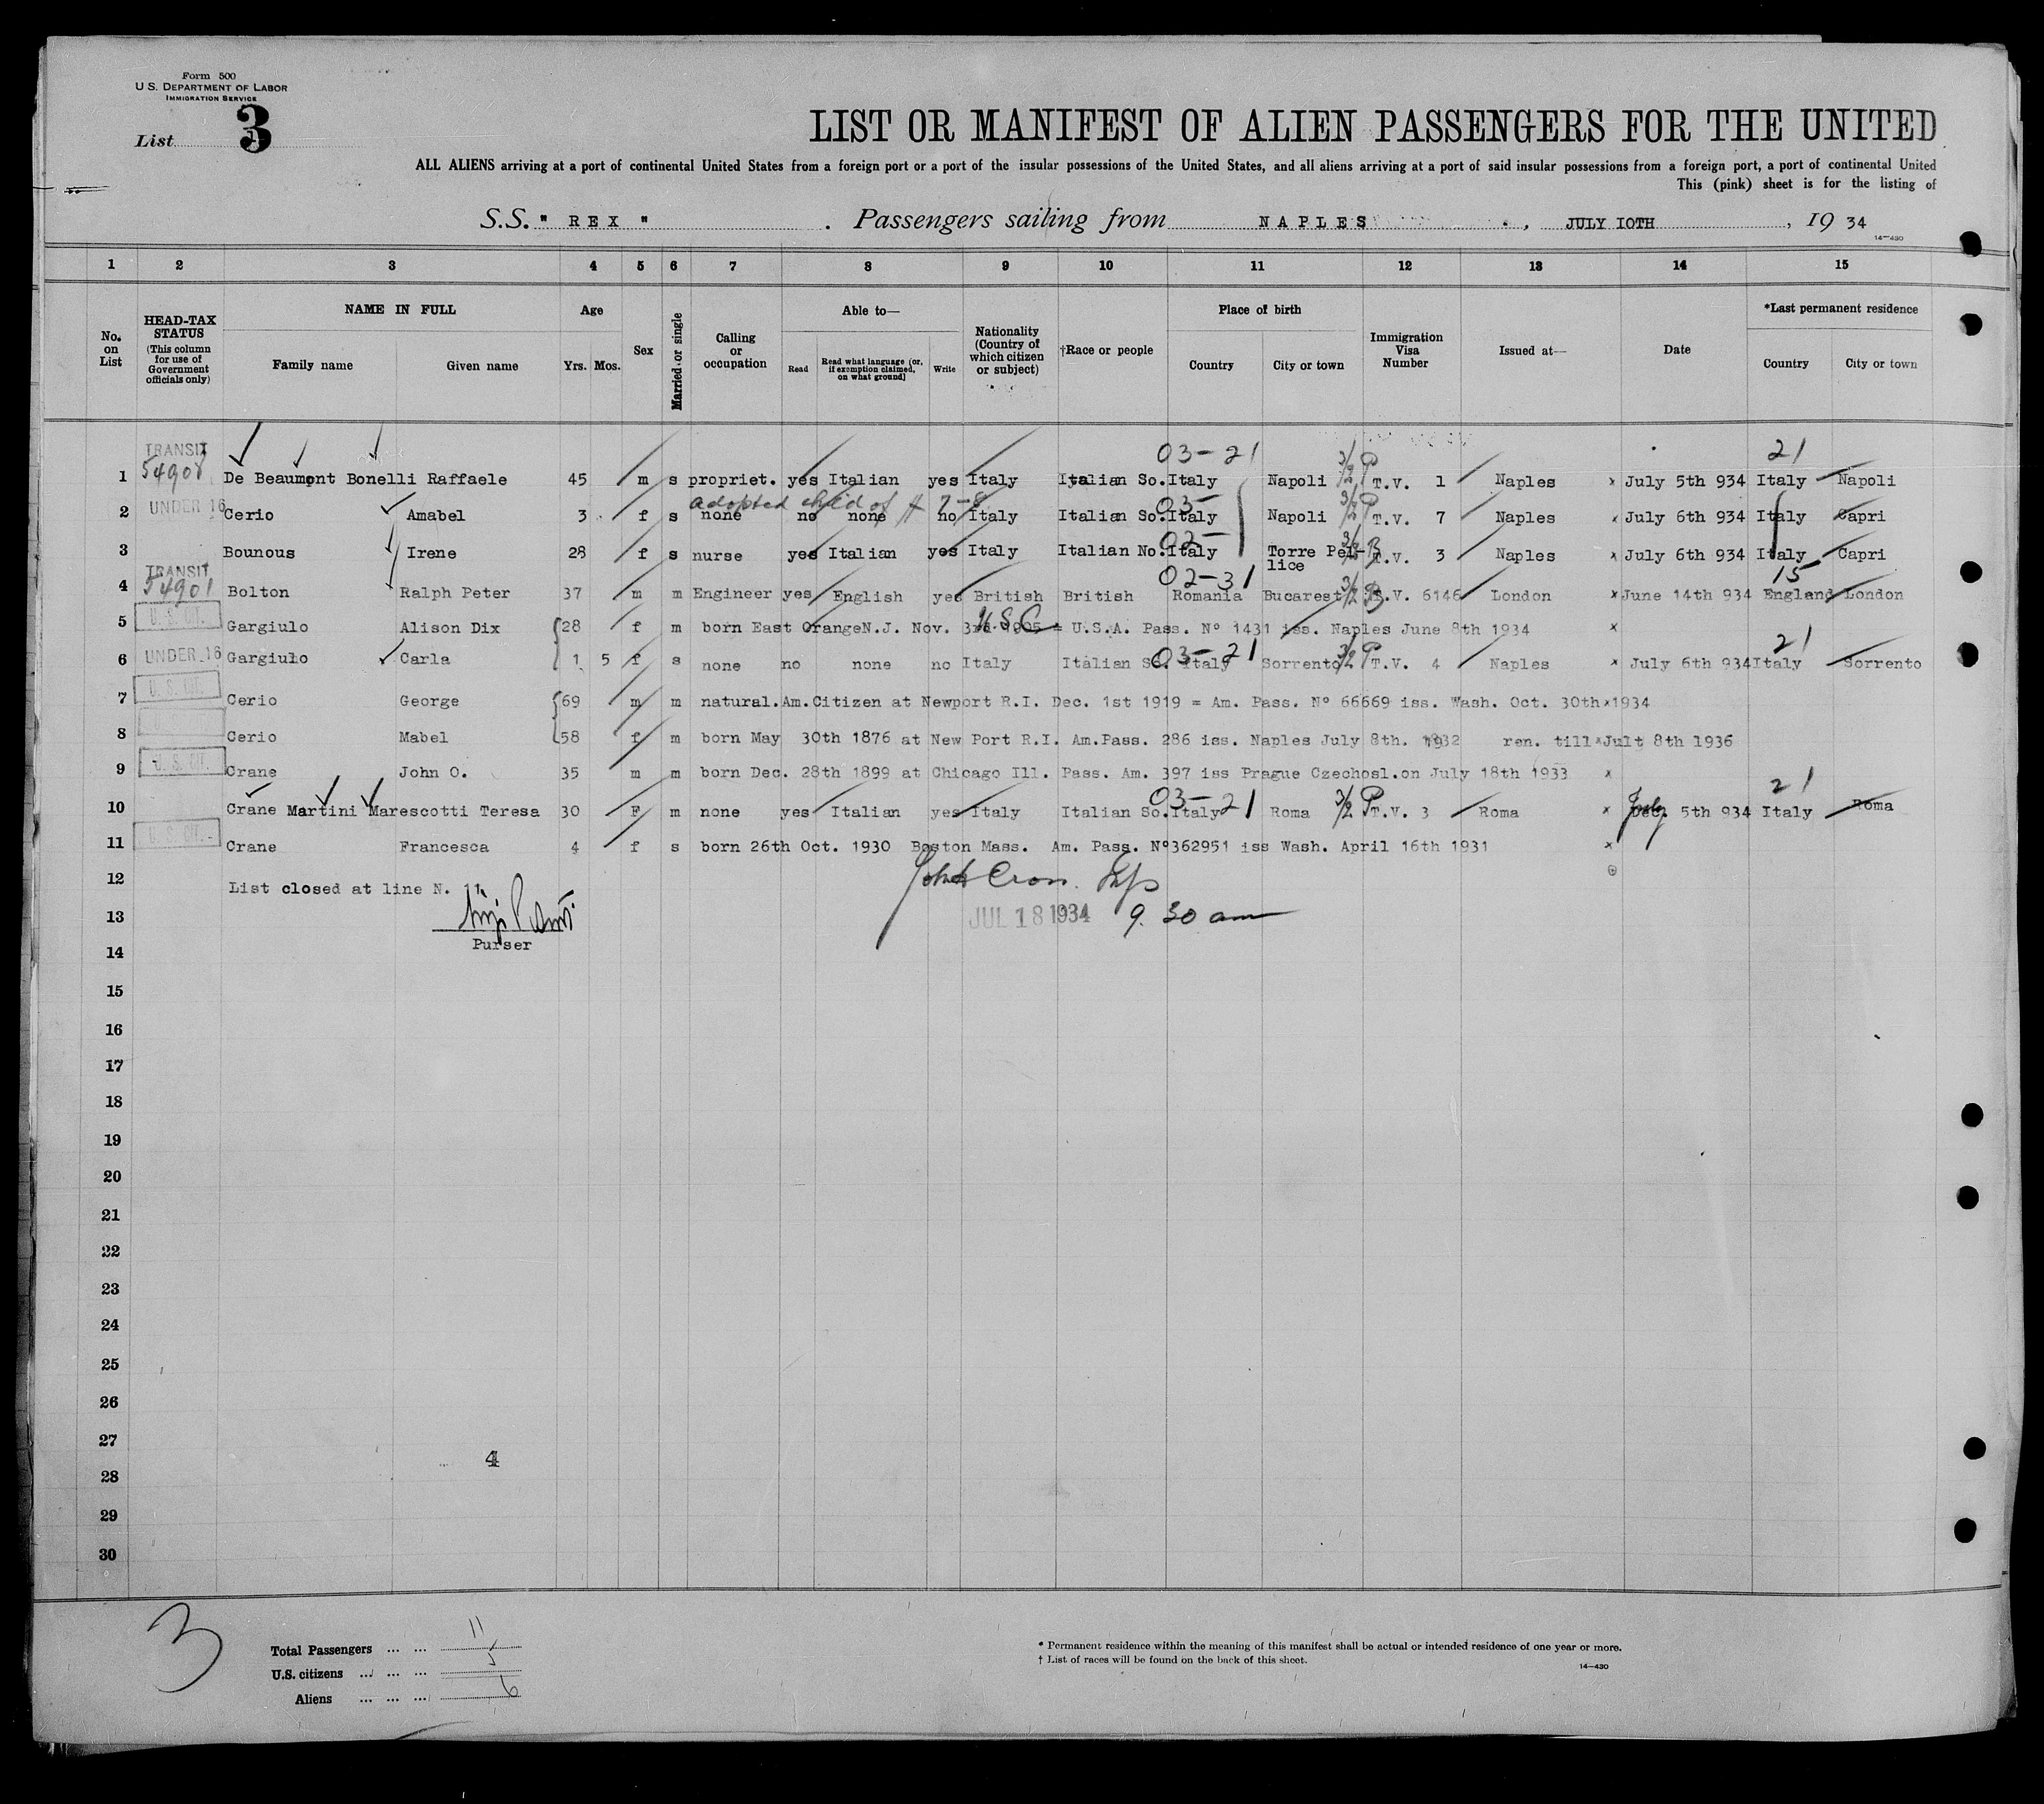 Form 500
U.S. DEPARTMENT OF LABOR
IMMIGRATION SERVICE
List 3
LIST OR MANIFEST OF ALIEN PASSENGERS FOR THE UNITED
ALL ALIENS arriving at a port of continental United States from a foreign port or a port of the insular possessions of the United States, and all aliens arriving at a port of said insular possessions from a foreign port, a port of continental United
This (pink) sheet is for the listing of
S.S. " REX " . Passengers sailing from NAPLES , JULY IOTH , 19 34
14—430
1 2 3 4 5 6 7 8 9 10 11 12 13 14 15
No. on List
HEAD-TAX STATUS (This column for use of Government officials only)
NAME IN FULL
Family name Given name
Age
Yrs. Mos.
Sex
Married or single
Calling or occupation
Able to—
Read Read what language (or, if exemption claimed, on what ground) Write
Nationality (Country of which citizen or subject)
†Race or people
Place of birth
Country City or town
Immigration Visa Number
Issued at—
Date
*Last permanent residence
Country City or town
TRANSIT 03-21 3/2 P 21
1 54908 De Beaumont Bonelli Raffaele 45 m s propriet. yes Italian yes Italy Italian So. Italy Napoli T.V. 1 Naples x July 5th 934 Italy Napoli
adopted child of # 7-8 03- 3/2 P
2 UNDER 16 Cerio Amabel 3 f s none no none no Italy Italian So. Italy Napoli T.V. 7 Naples x July 6th 934 Italy Capri
02- 3/2 B
3 Bounous Irene 28 f s nurse yes Italian yes Italy Italian No. Italy Torre Pel-lice T.V. 3 Naples x July 6th 934 Italy Capri
TRANSIT 02-31 3/2 B 15
4 54901 Bolton Ralph Peter 37 m m Engineer yes English yes British British Romania Bucarest T.V. 6146 London x June 14th 934 England London
5 U.S. CIT. Gargiulo Alison Dix 28 f m born East OrangeN.J. Nov. 3rd 1905 = U.S.A. Pass. Nº 1431 iss. Naples June 8th 1934 x
U.S.C
03-21 3/2 P 21
6 UNDER 16 Gargiulo Carla 1 5 f s none no none no Italy Italian So. Italy Sorrento T.V. 4 Naples x July 6th 934 Italy Sorrento
7 U.S. CIT. Cerio George 69 m m natural.Am.Citizen at Newport R.I. Dec. 1st 1919 = Am. Pass. Nº 66669 iss. Wash. Oct. 30th x 1934
8 Cerio Mabel 58 f m born May 30th 1876 at New Port R.I. Am.Pass. 286 iss. Naples July 8th. 1932 ren. till x Jult 8th 1936
9 U.S. CIT. Crane John O. 35 m m born Dec. 28th 1899 at Chicago Ill. Pass. Am. 397 iss Prague Czechosl.on July 18th 1933 x
03-21 3/2 P 21
10 Crane Martini Marescotti Teresa 30 F m none yes Italian yes Italy Italian So. Italy Roma T.V. 3 Roma x July 5th 934 Italy Roma
11 U.S. CIT. Crane Francesca 4 f s born 26th Oct. 1930 Boston Mass. Am. Pass. Nº362951 iss Wash. April 16th 1931 x
12 List closed at line N. 11
13 JUL 18 1934 9.30 am
Purser
14
15
16
17
18
19
20
21
22
23
24
25
26
27
4
28
29
30
3
Total Passengers ... ... 11
U.S. citizens ... ... ... 5
Aliens ... ... ... 6
* Permanent residence within the meaning of this manifest shall be actual or intended residence of one year or more.
† List of races will be found on the back of this sheet.
14—430